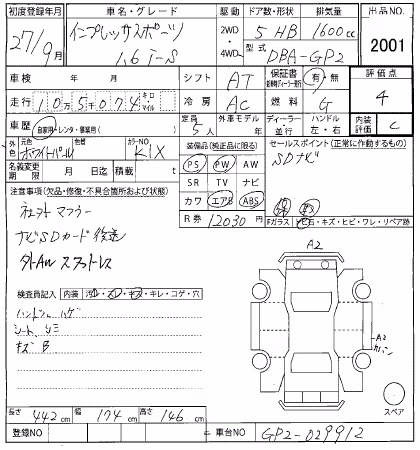 初度登録年月 車名・グレード 駆動 ドア数・形状 排気量 出品NO.
27/9月 インプレッサスポーツ 1.6 i-S 2WD・4WD 5 HB 1600cc 2001
型式 DBA-GP2
車検 年 月 シフト AT 保証書 有・無 評価点 4
走行 10万5千074 キロ マイル 冷房 AC 燃料 G
車歴 自家用・レンタ・事業用( ) 定員 5人 外車モデル 年 ディーラー・並行 ハンドル 左・右 内装評価 C
外色 元色 ホワイトパール カラーNO. K1X 装備品(純正品に限る) セールスポイント(正常に作動するもの)
名義変更期限 月 日迄 積載 t PS PW AW SDナビ
SR TV ナビ
注意事項(欠品・修復・不具合箇所および状態) カワ エアB ABS
社外マフラー R券 12030円 Fガラス トビ石・キズ・ヒビ・ワレ・リペア跡
ナビSDカード後送
外AW スタッドレス
A2
検査員記入 内装 汚・スレ・キズ・キレ・コゲ・穴
ハンドルハゲ
シートシミ
キズ B
A2
スペア
長さ 442cm 幅 174cm 高さ 146cm
登録NO 車台NO GP2-029912